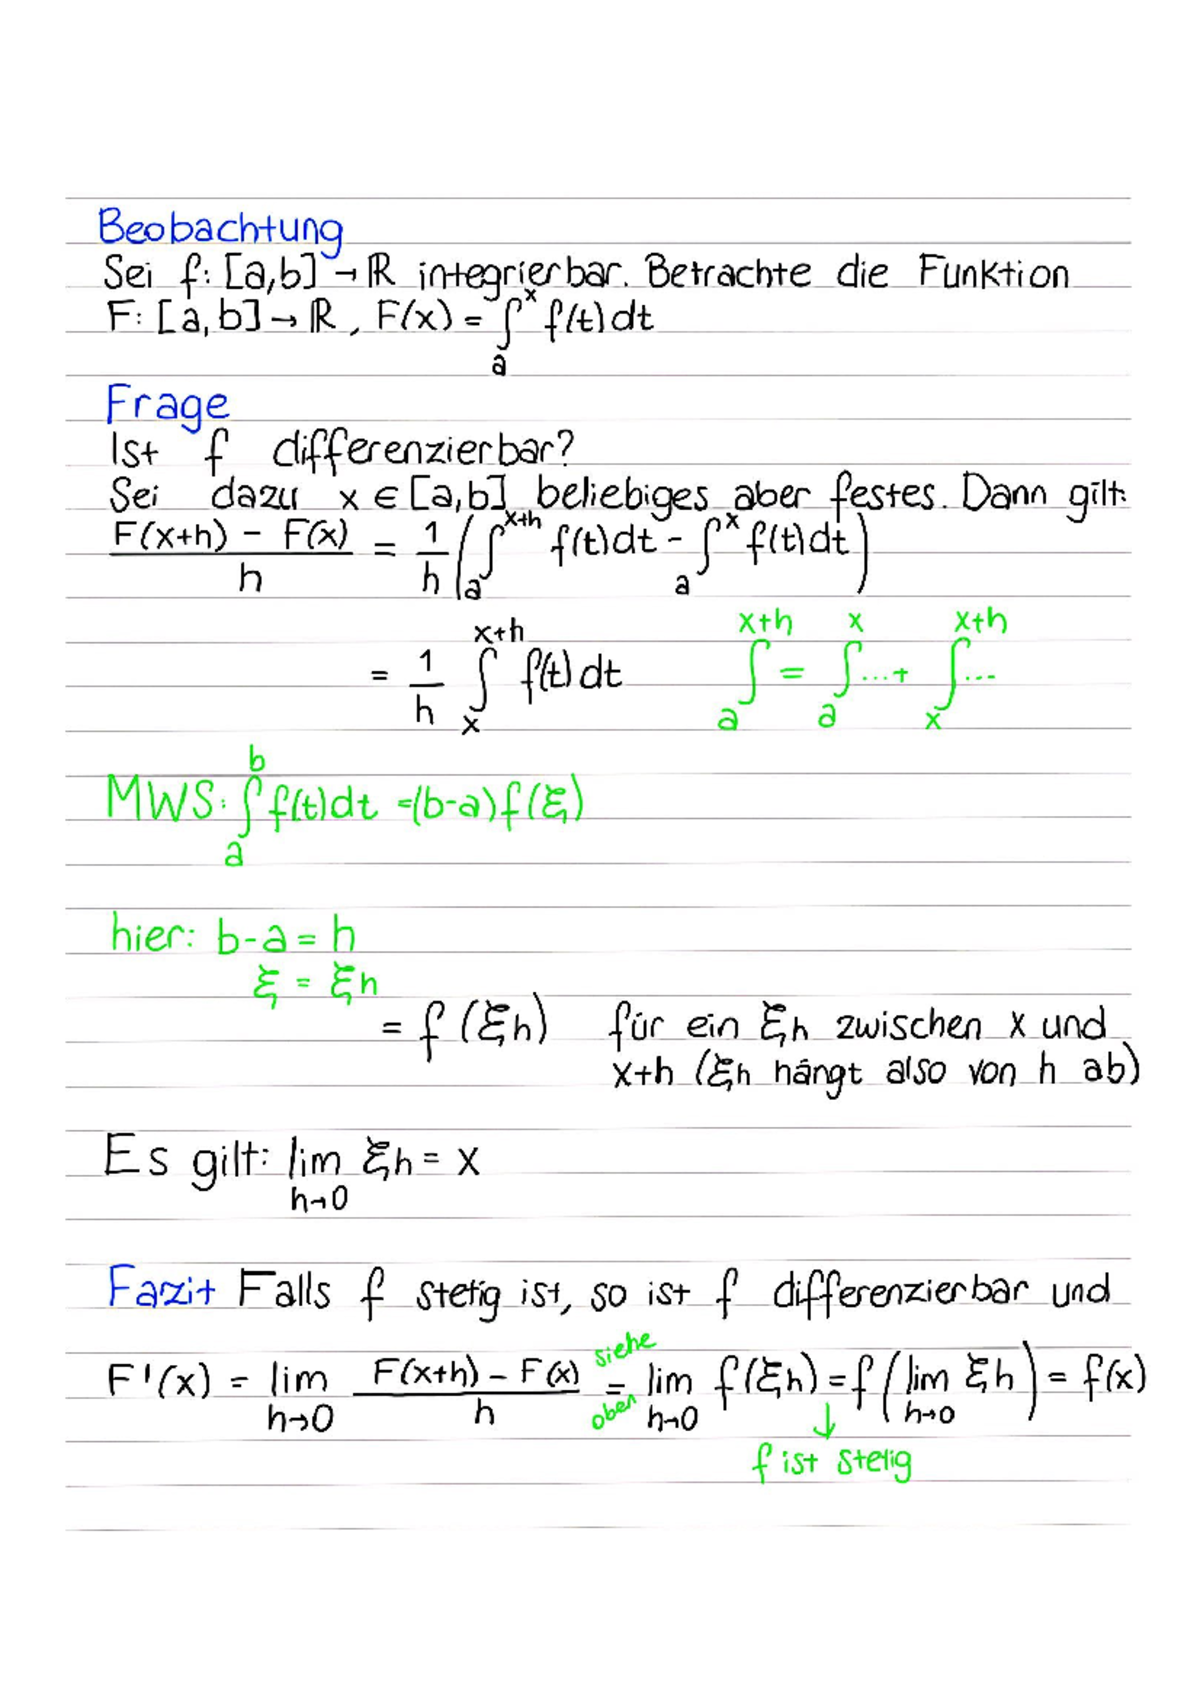 Beobachtung
Sei f: [a,b] → ℝ integrierbar. Betrachte die Funktion
F: [a,b] → ℝ, F(x) = ∫_a^x f(t)dt
Frage
Ist f differenzierbar?
Sei dazu x ∈ [a,b] beliebiges aber festes. Dann gilt:
(F(x+h) - F(x))/h = 1/h (∫_a^{x+h} f(t)dt - ∫_a^x f(t)dt)
= 1/h ∫_x^{x+h} f(t)dt ∫_a^{x+h} = ∫_a^x ... + ∫_x^{x+h} ...
MWS: ∫_a^b f(t)dt = (b-a)f(ξ)
hier: b-a = h
ξ = ξh
= f(ξh) für ein ξh zwischen x und
x+h (ξh hängt also von h ab)
Es gilt: lim_{h→0} ξh = x
Fazit Falls f stetig ist, so ist f differenzierbar und
F'(x) = lim_{h→0} (F(x+h) - F(x))/h = siehe oben lim_{h→0} f(ξh) = f(lim_{h→0} ξh) = f(x)
↓
f ist stetig